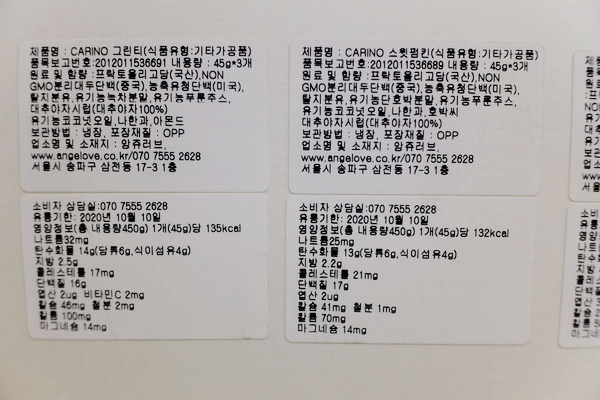 제품명 : CARINO 그린티(식품유형:기타가공품)
품목보고번호:2012011536691 내용량 : 45g*3개
원료 및 함량 :프락토올리고당(국산),NON
GMO분리대두단백(중국),농축유청단백(미국),
탈지분유,유기농녹차분말,유기농푸룬주스,
대추야자시럽(대추야자100%)
유기농코코넛오일,나한과,아몬드
보관방법 : 냉장, 포장재질 : OPP
업소명 및 소재지 : 앙쥬러브,
www.angelove.co.kr/070 7555 2628
서울시 송파구 삼전동 17-3 1층
소비자 상담실:070 7555 2628
유통기한: 2020년 10월 10일
영양정보(총 내용량450g) 1개(45g)당 135kcal
나트륨32mg
탄수화물 14g(당류6g,식이섬유4g)
지방 2.5g
콜레스테롤 17mg
단백질 16g
엽산 2ug 비타민C 2mg
칼슘 46mg 철분 2mg
칼륨 100mg
마그네슘 14mg
제품명 : CARINO 스윗펌킨(식품유형:기타가공품)
품목보고번호:2012011536689 내용량 : 45g*3개
원료 및 함량 :프락토올리고당(국산),NON
GMO분리대두단백(중국),농축유청단백(미국),
탈지분유,유기농단호박분말,유기농푸룬주스,
대추야자시럽(대추야자100%)
유기농코코넛오일,나한과,호박씨
보관방법 : 냉장, 포장재질 : OPP
업소명 및 소재지 : 앙쥬러브,
www.angelove.co.kr/070 7555 2628
서울시 송파구 삼전동 17-3 1층
소비자 상담실:070 7555 2628
유통기한: 2020년 10월 10일
영양정보(총 내용량450g) 1개(45g)당 132kcal
나트륨25mg
탄수화물 13g(당류6g,식이섬유4g)
지방 2.2g
콜레스테롤 21mg
단백질 17g
엽산 2ug
칼슘 41mg 철분 1mg
칼륨 70mg
마그네슘 14mg